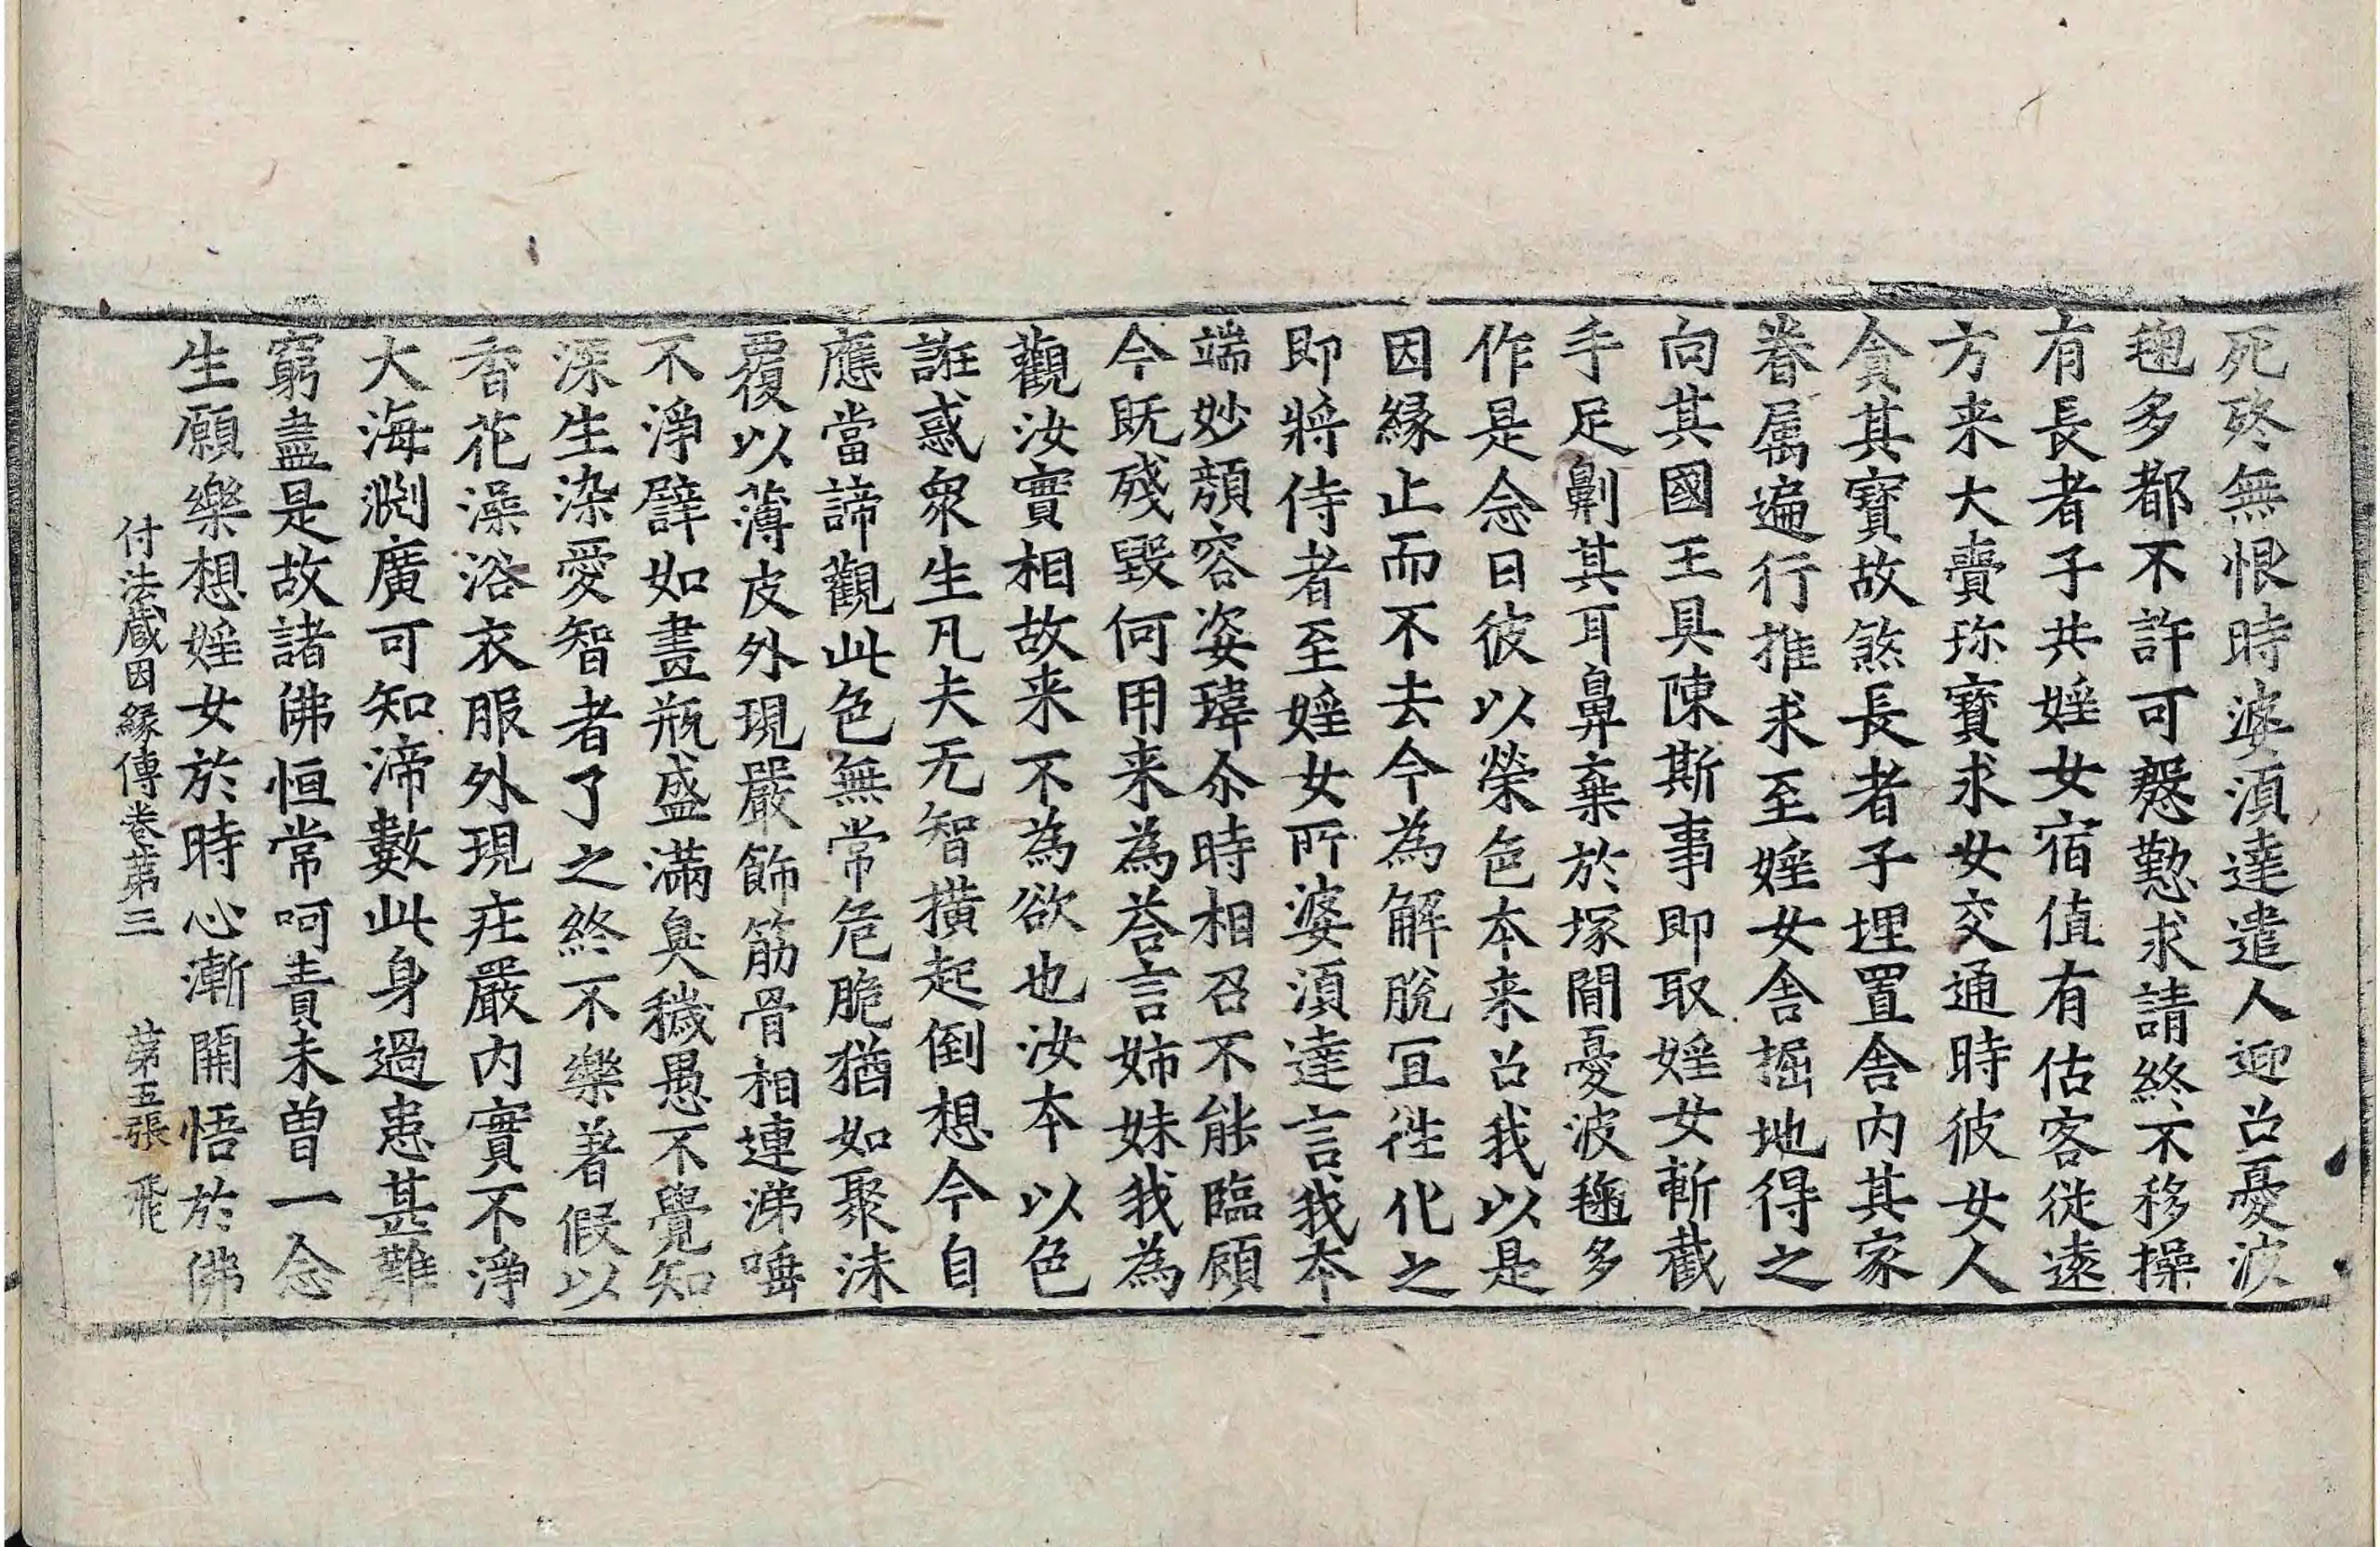 死終無恨時婆湏達遣人迎召憂波
毱多都不許可慇懃求請終不移操
有長者子共婬女宿值有估客従逺
方来大賷珎寳求女交通時彼女人
貪其寳故煞長者子埋置舎內其家
眷属遍行推求至婬女舎掘地得之
向其國王具陳斯事即取婬女斬截
手足劓其耳鼻棄於塚間憂波毱多
作是念曰彼以榮色本来召我以是
因緣止而不去今為解脫冝徃化之
即將侍者至婬女所婆湏達言我本
端妙顏容姿瑋尒時相召不能臨顧
今既殘毀何用来為荅言姉妹我為
觀汝實相故来不為欲也汝本以色
誑惑衆生凡夫无智橫起倒想今自
應當諦觀此色無常危脆猶如聚沫
覆以薄皮外現嚴飾筋骨相連涕唾
不淨譬如畫瓶盛滿臭穢愚不覺知
深生染愛智者了之終不樂著假以
香花澡浴衣服外現疘嚴內實不淨
大海渕廣可知渧數此身過患甚難
窮盡是故諸佛恒常呵責未曽一念
生願樂想婬女於時心漸開悟於佛
付法蔵因緣傳卷苐三　苐五張　飛